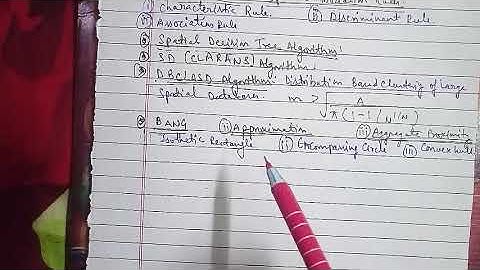 (i) Characteristic Rule. (ii) Discriminant Rule
(iii) Association Rule
Spatial Decision Tree Algorithm:
SD (CLARANS) Algorithm.
DBCLASD Algorithm: Distribution Based Clustering of Large
Spatial Databases. m > √A/π(1-1/N^1/N)
BANG (i) Approximation (iii) Aggregate Proximity
Isothetic Rectangle (ii) Encompassing Circle (iii) Convex Hull